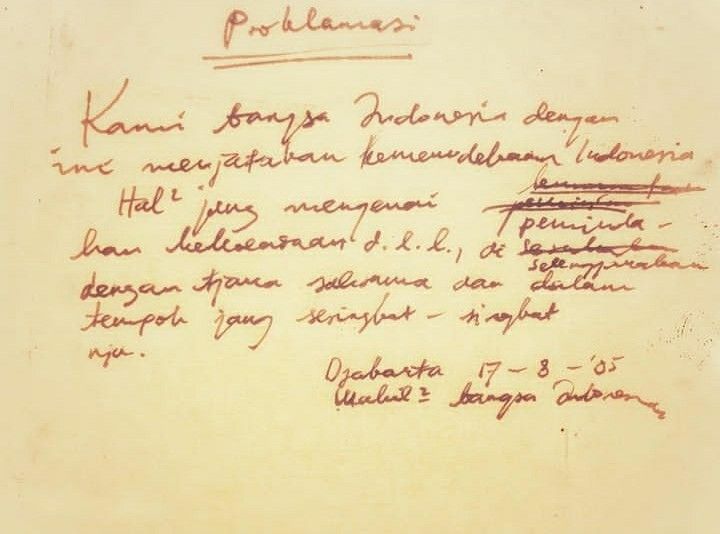 Proklamasi
Kami bangsa Indonesia dengan
ini menjatakan kemerdekaan Indonesia
Hal² jang mengenai
peminda-
han kekoeasaan d.l.l., di
selenggarakan
dengan tjara saksama dan dalam
tempoh jang sesingkat-singkat
nja.
Djakarta 17 - 8 - '05
Wakil² bangsa Indonesia